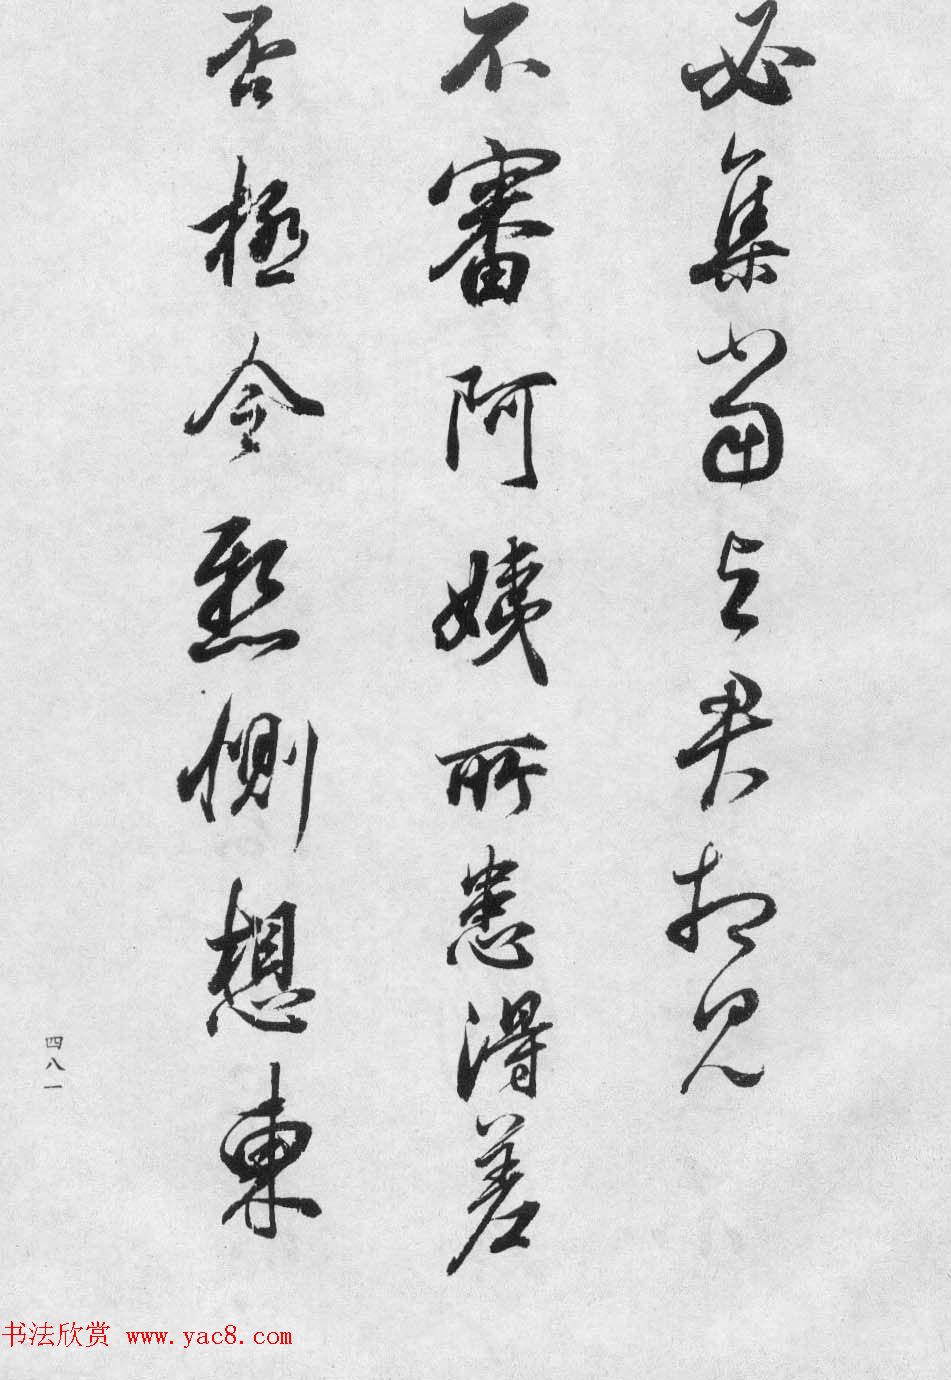 必集當与君相見
不審阿姨所患得差
否極令懸惻想東
四八一
书法欣赏 www.yac8.com